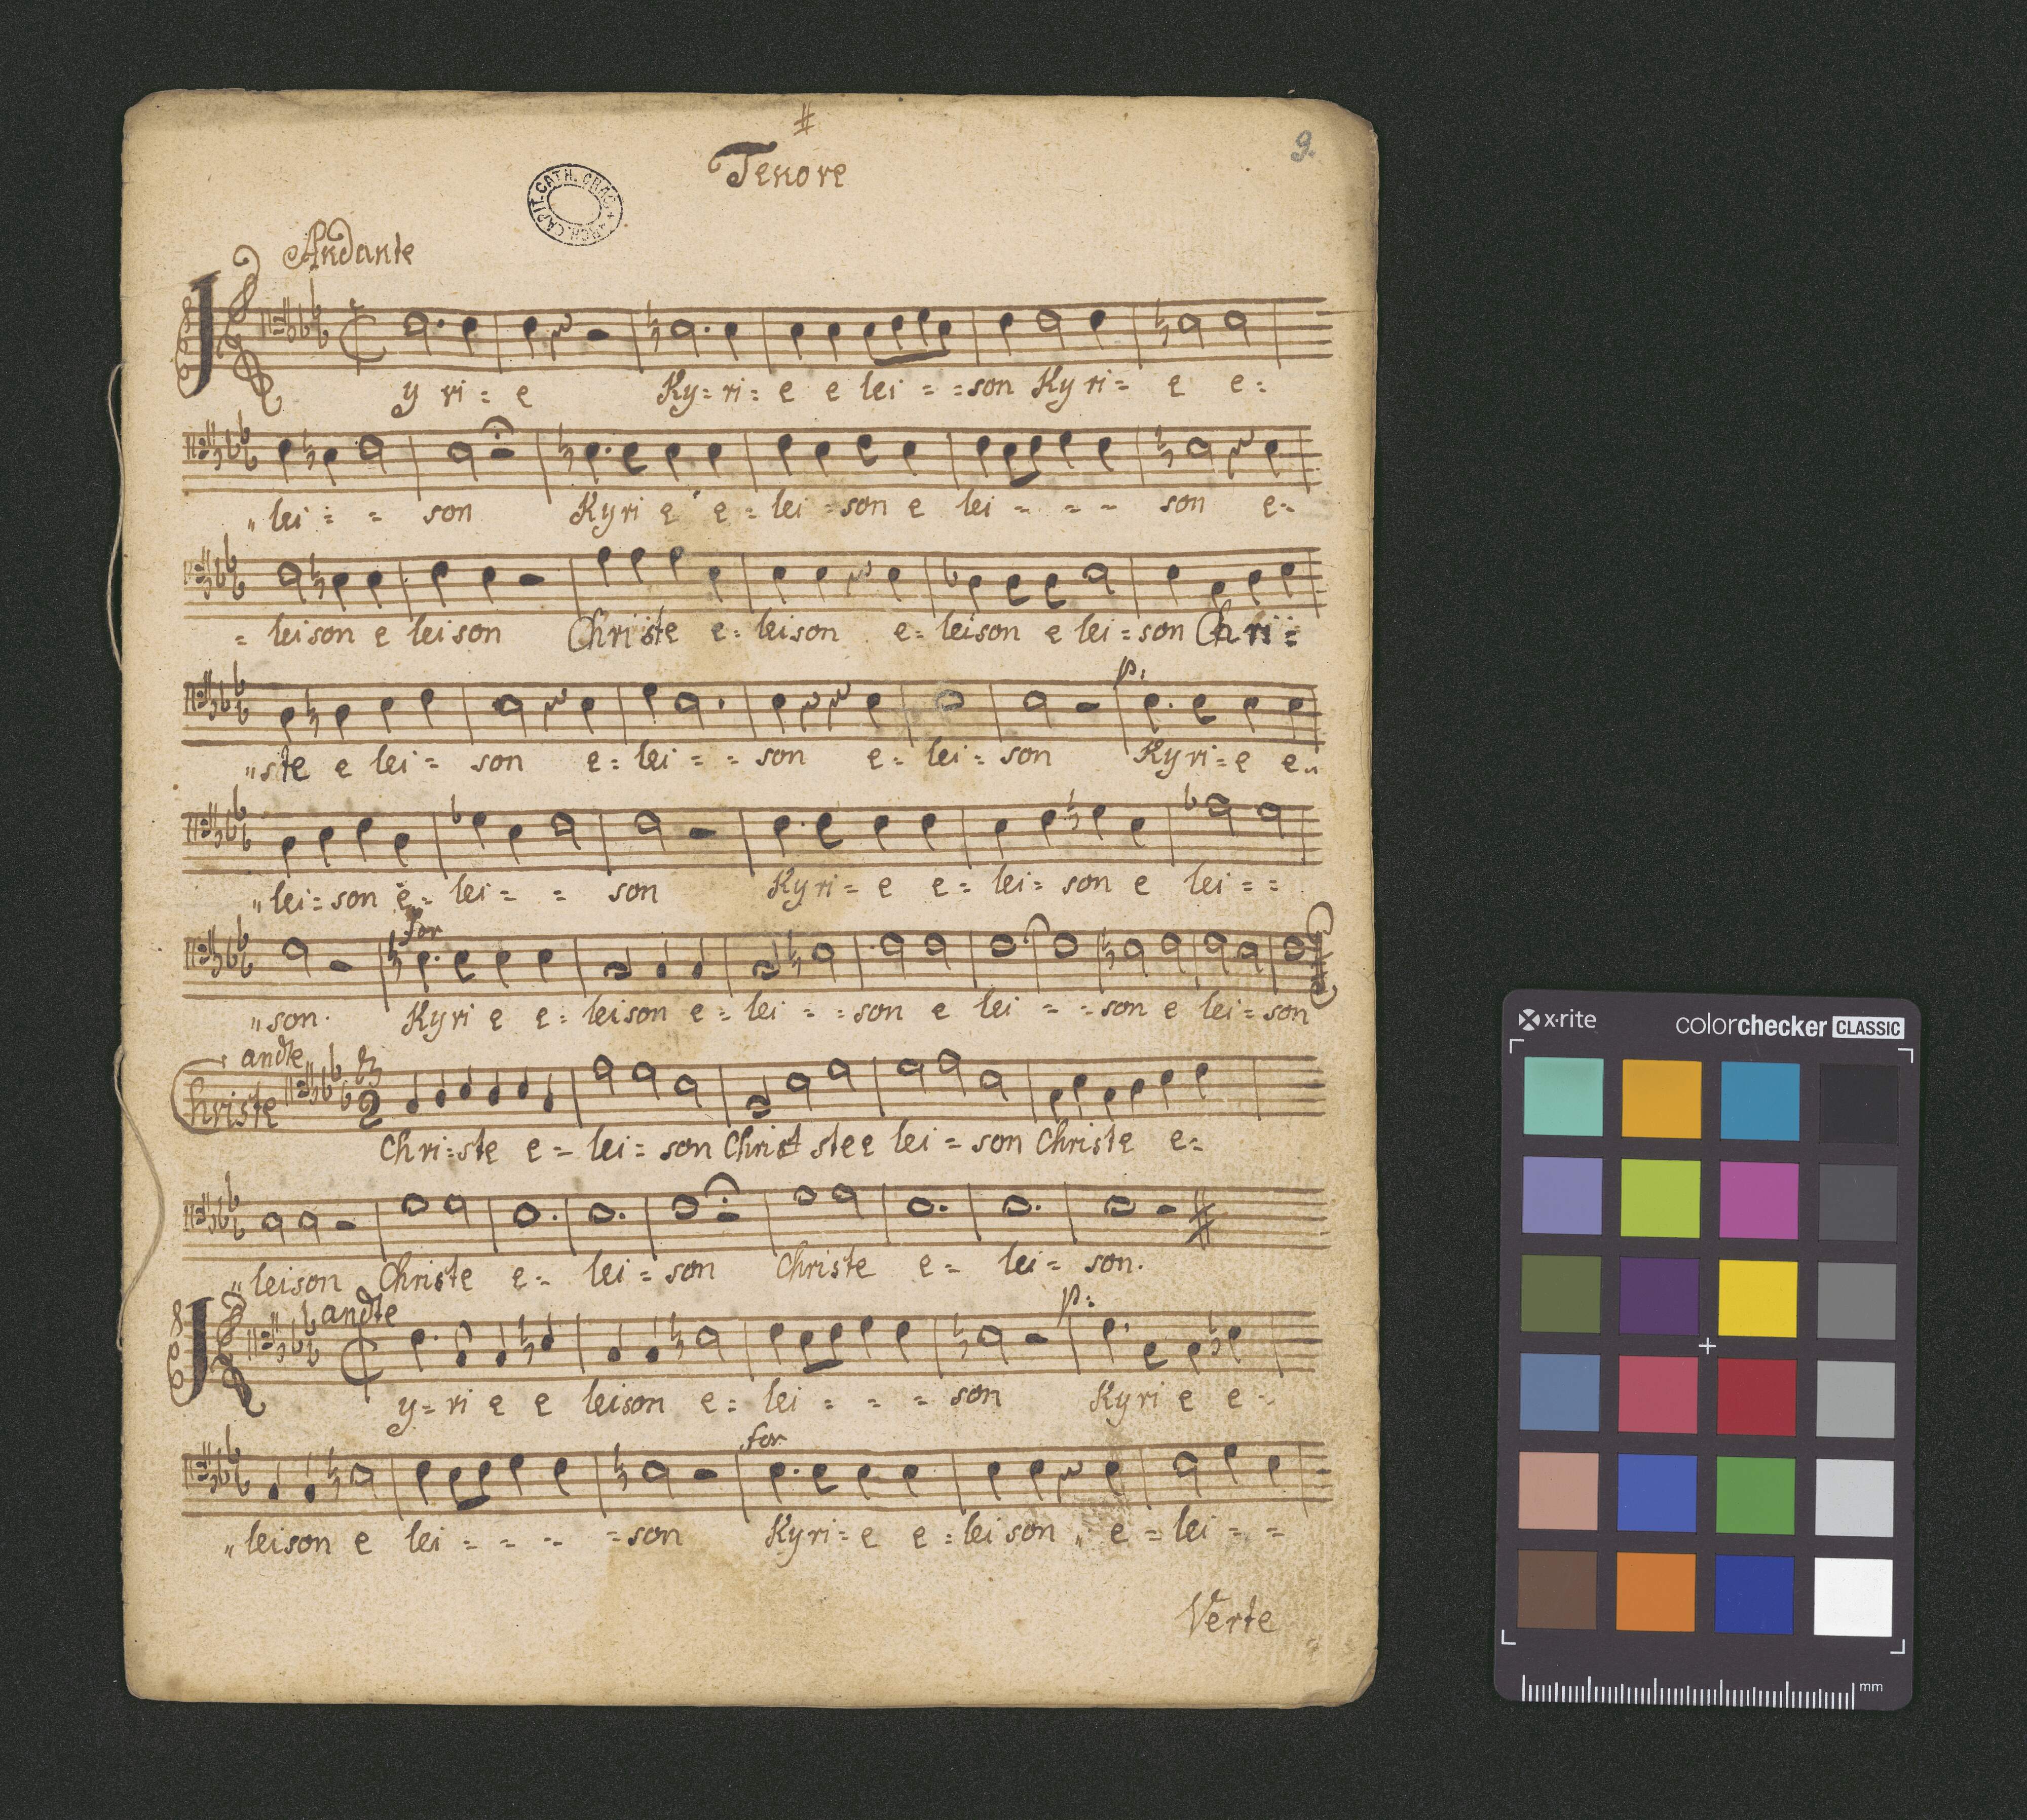 9.
Tenore
ARCH. CAPIT. CATH. CRAC.
Andante
Ky ri = e Ky = ri = e e lei = = son Ky ri = e e =
" lei = = son Kyri e e = lei = son e lei = = = son e =
= leison e leison Christe e = leison e = leison e lei = son Chri =
" ste e lei = son e = lei = = son e = lei = son Kyri = e e =
p:
" lei = son e = lei = = son Kyri = e e = lei = son e lei = =
for
" son. Kyri e e = leison e = lei = = son e lei = = son e lei = son
andte
Christe Chri = ste e = lei = son Christ ste e lei = son Christe e =
3
2
" leison Christe e = lei = son Christe e = lei = son.
andte
p:
Ky = ri e e leison e = lei = = = son Kyri e e =
for
" leison e lei = = = = son Kyri = e e = lei son " e = lei = =
Verte
x·rite
colorchecker CLASSIC
mm